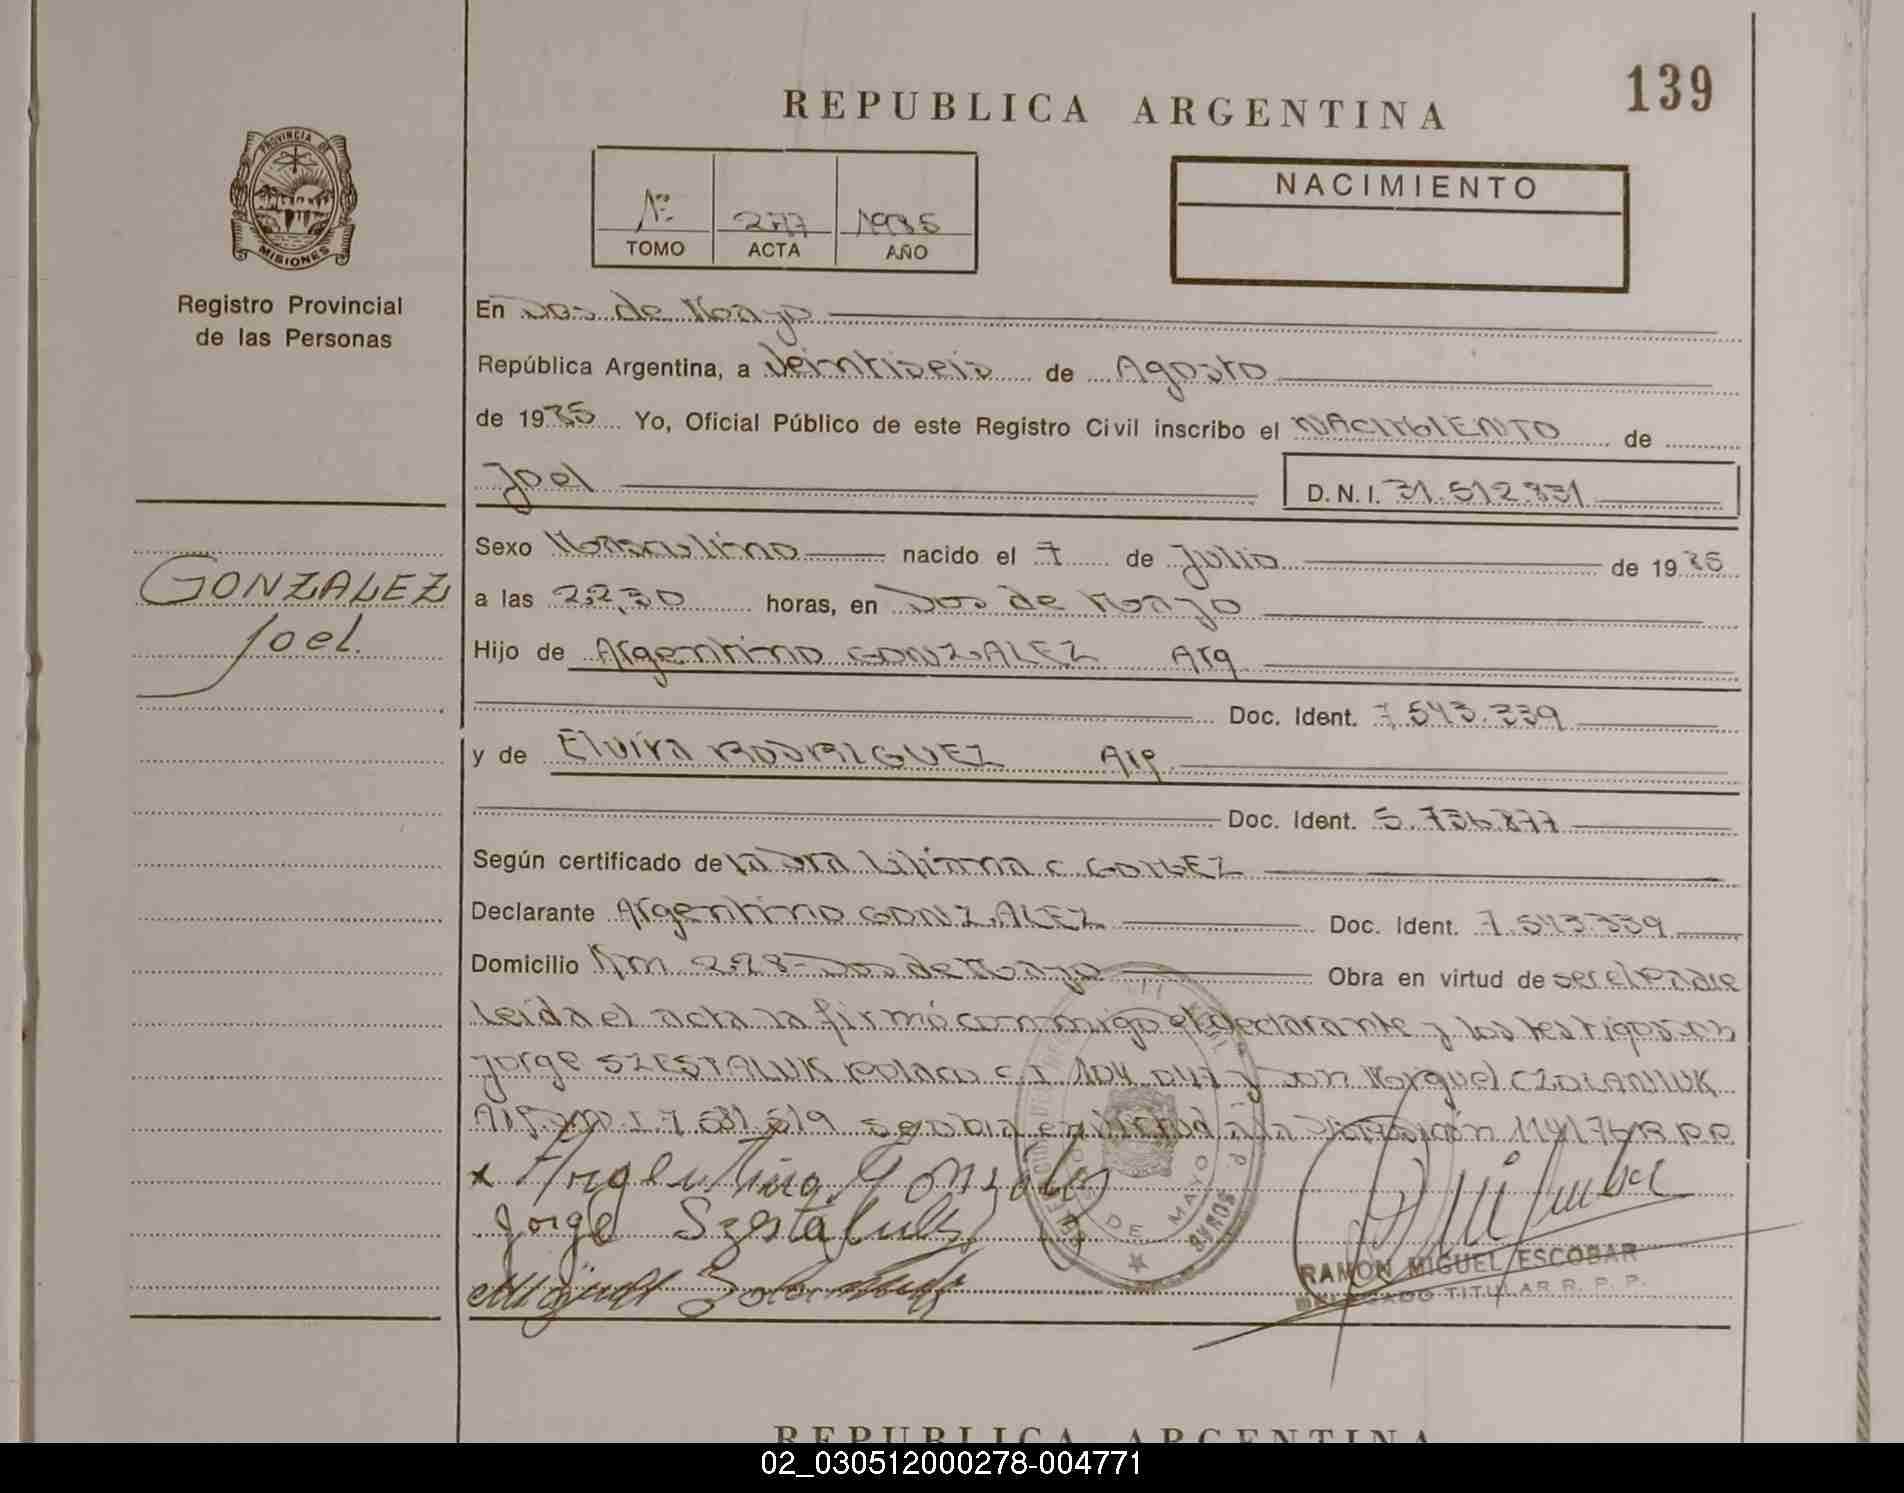 139
REPUBLICA ARGENTINA
PROVINCIA DE
MISIONES
Registro Provincial
de las Personas
Nº 277 1985
TOMO ACTA AÑO
NACIMIENTO
En Dos de Mayo
República Argentina, a Veintiseis de Agosto
de 1985 Yo, Oficial Público de este Registro Civil inscribo el NACIMIENTO de
Joel D.N.I. 31.512.831
GONZALEZ
Joel.
Sexo Masculino nacido el 7 de Julio de 1985
a las 22,30 horas, en Dos de Mayo
Hijo de Argentino GONZALEZ Arg
Doc. Ident. 7.543.339
y de Elvira RODRIGUEZ Arg
Doc. Ident. 5.736.877
Según certificado de la Dra Liliana C. GOMEZ
Declarante Argentino GONZALEZ Doc. Ident. 7.543.339
Domicilio Km 228-Dos de Mayo Obra en virtud de ser el Padre
Leída el acta la firmó conmigo el declarante y los testigos
Jorge SZESTALUK polaco C.I 104.047 y Don Miguel
7.581.519 en virtud a la Disposición 114/76 R.P.P
x Argentino Gonzalez
Jorge Szestaluk
Miguel
DE MAYO
RAMON MIGUEL ESCOBAR
DELEGADO TITULAR R. P. P.
REPUBLICA ARGENTINA
02_030512000278-004771